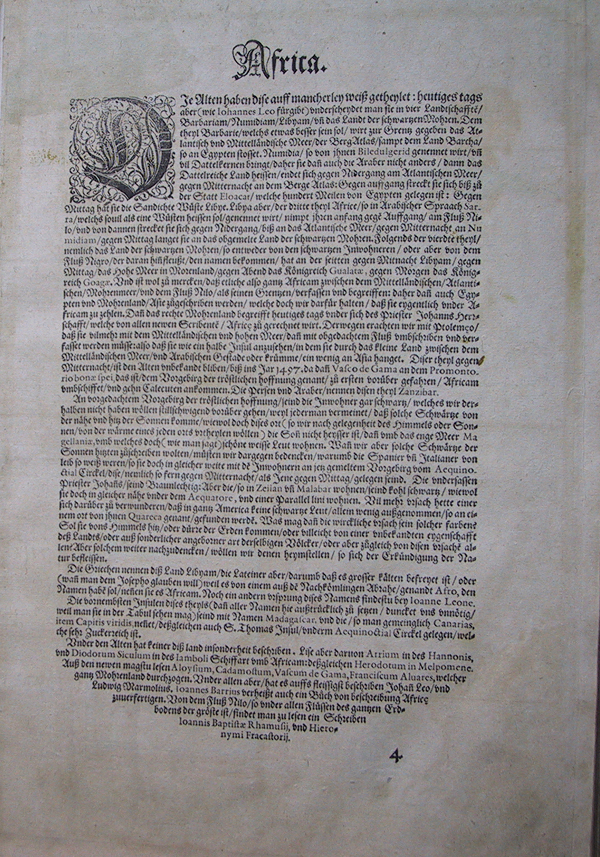 Africa.
DIe Alten haben dise auff mancherley weiß getheylet: heutiges tags
aber (wie Iohannes Leo fürgibt) vnderscheydet man sie in vier Landtschafftē/
Barbariam/Numidiam/Libyam/vñ das Landt der schwartzen Mohren. Dem
theyl Barbarie/welchs etwas besser sein sol/ wirt zur Grentz gegeben das At-
lantisch vnd Mittelländische Meer/der Berg Atlas/sampt dem Landt Barcha/
so an Egypten stosset. Numidia/ so von jhnen Biledulgerid genennet wirt/vñ
vil Dattelkernen bringt/daher sie dañ auch die Araber nicht anders/ dann das
Dattelreiche Land heissen/endet sich gegen Nidergang am Atlantischen Meer/
gegen Mitternacht an dem Berge Atlas: Gegen auffgang streckt sie sich biß zů
der Statt Eloacat/ welche hundert Meilen von Egypten gelegen ist: Gegen
Mittag hat sie die Sandichte Wüste Libye. Libya aber/ der dritte theyl Africe/ so in Arabischer Spraach Sar-
ra/ welchs souil als eine Wüsten heissen sol/ genennet wirt/ nimpt jhren anfang gegē Auffgang/ am Fluß Ni-
lo/vnd von dannen strecket sie sich gegen Nidergang/biß an das Atlantische Meer/gegen Mitternacht an Nu
midiam/gegen Mittag langet sie an das obgemelte Land der schwartzen Mohren. Folgends der vierdte theyl/
nemlich das Land der schwartzen Mohren/so entweder von den schwartzen Inwohneren/ oder aber von dem
Fluß Nigro/der daran hinfleußt/den namen bekommen/ hat an der seitten gegen Mitnacht Libyam/ gegen
Mittag/das Hohe Meer in Morenland/gegen Abend das Königreich Gualatæ, gegen Morgen das König-
reich Goagæ. Vnd ist wol zu mercken/daß etliche also gantz Africam zwischen dem Mittelländischen/ Atlanti-
schen/Mohrenmeer/vnd dem Fluß Nilo/als seinen Grentzen/verfassen vnd begreiffen: daher dañ auch Egy-
pten vnd Mohrenland/Asiæ zůgeschriben werden/ welche doch wir darfür halten / daß sie eygentlich vnder A-
fricam zu zehlen. Dañ das rechte Mohrenland begreifft heutiges tags vnder sich des Priester Johanns Herr-
schafft/welche von allen newen Scribentē/ Africę zů gerechnet wirt. Derwegen erachten wir mit Ptolemęo/
daß sie vilmehr mit dem Mittelländischen vnd hohen Meer/ dañ mit obgedachtem Fluß vmbschriben vnd ver-
fasset werden müsse: also daß sie wie ein halbe Insul anzusehen/ in dem sie durch das kleine Land zwischen dem
Mittelländischen Meer/vnd Arabischen Gestade oder krümme/ein wenig an Asia hanget. Diser theyl gegen
Mitternacht/ist den Alten vnbekandt bliben/biß ins Jar 1497. da dañ Vasco de Gama an dem Promonto-
rio bonæ spei, das ist/dem Vorgebirg der tröstlichen hoffnung genant/ zu ersten vorüber gefahren/ Africam
vmbschiffet/vnd gehn Calecuten ankommen. Die Persen vnd Araber/ nennen disen theyl Zanzibar.
An vorgedachtem Vorgebirg der tröstlichen hoffnung/seind die Inwohner gar schwartz/ welches wir der-
halben nicht haben wöllen stillschweigend vorüber gehen/weyl jederman vermeinet/ daß solche Schwärtze von
der nähe vnd hitz der Sonnen komme/wiewol doch dises ort (so wir nach gelegenheit des Himmels oder Son-
nen/von der wärme eines jeden orts vrtheylen wöllen) die Soñ nicht heysser ist/ dañ vmb das enge Meer Ma
gellaniæ,vmb welches doch (wie man sagt) schöne weisse Leut wohnen. Wañ wir aber solche Schwärtze der
Sonnen hitzen zůschreiben wolten/ müßten wir dargegen bedencken/ warumb die Spanier vñ Italianer von
leib so weiß weren/so sie doch in gleicher weite mit dē Inwohnern an jen gemeltem Vorgebirg vom Aequino-
ctial Circkel/dise/nemlich so fern gegen Mitternacht/ als Jene gegen Mittag/ gelegen seind. Die vndersassen
Priester Johañs/seind Braunlecht: Aber die/so in Zeilan vñ Malabar wohnen/seind kohl schwartz/ wiewol
sie doch in gleicher nähe vnder dem Aequatore, vnd einer Parallel lini wohnen. Vil mehr vrsach hette einer
sich darüber zu verwunderen/daß in gantz America keine schwartze Leut/allein wenig außgenommen/so an ei-
nem ort von jhnen Quareca genant/gefunden werdē. Was mag dañ die wirckliche vrsach sein solcher farben?
Sol sie von Himmels hitz/oder dürre der Erden kommen/oder villeicht von einer vnbekandten eygenschafft
deß Landts/oder auß sonderlicher angeborner art derselbigen Völcker/ oder aber zůgleich von disen vrsachē al-
len? Aber solchem weiter nachzudencken/ wöllen wir denen heymstellen/ so sich der Erkündigung der Na-
tur befleissen.
Die Griechen nennen diß Land Libyam/die Lateiner aber/darumb daß es grosser kälten befreyet ist / oder
(wañ man dem Iosepho glauben will) weil es von einem auß dē Nachkömlingen Abrahę/genandt Afro, den
Namen habē sol/neñen sie es Africam. Noch ein andern vrsprung dises Namens findestu bey Ioanne Leone.
Die vornembsten Insulen dises theyls (daß aller Namen hie außtrücklich zu setzen / duncket vns vnnötig/
weil man sie in der Tabul sehen mag) seind mit Namen Madagascar. vnd die / so man gemeinglich Canarias,
item Capitis viridis, neñet/deßgleichen auch S. Thomas Insul/vnderm Aequinoctial Circkel gelegen/ wel-
che sehr Zuckerreich ist.
Vnder den Alten hat keiner diß land insonderheit beschriben. Lise aber daruon Atrium in des Hannonis,
vnd Diodorum Siculum in des Iamboli Schiffart vmb Africam: deßgleichen Herodotum in Melpomene.
Auß den newen magstu lesen Aloysium, Cadamostum, Vascum de Gama, Franciscum Aluares, welcher
gantz Mohrenland durchzogen. Vnder allen aber/hat es auffs fleissigst beschriben Johañ Leo/vnd
Ludwig Marmolius. Ioannes Barrius verheißt auch ein Bůch von beschreibung Africę
zuuerfertigen. Von dem Fluß Nilo/ so vnder allen Flüssen des gantzen Erd-
bodens der gröste ist/findet man zu lesen ein Schreiben
Ioannis Baptistæ Rhamusij, vnd Hiero-
nymi Fracastorij.
4